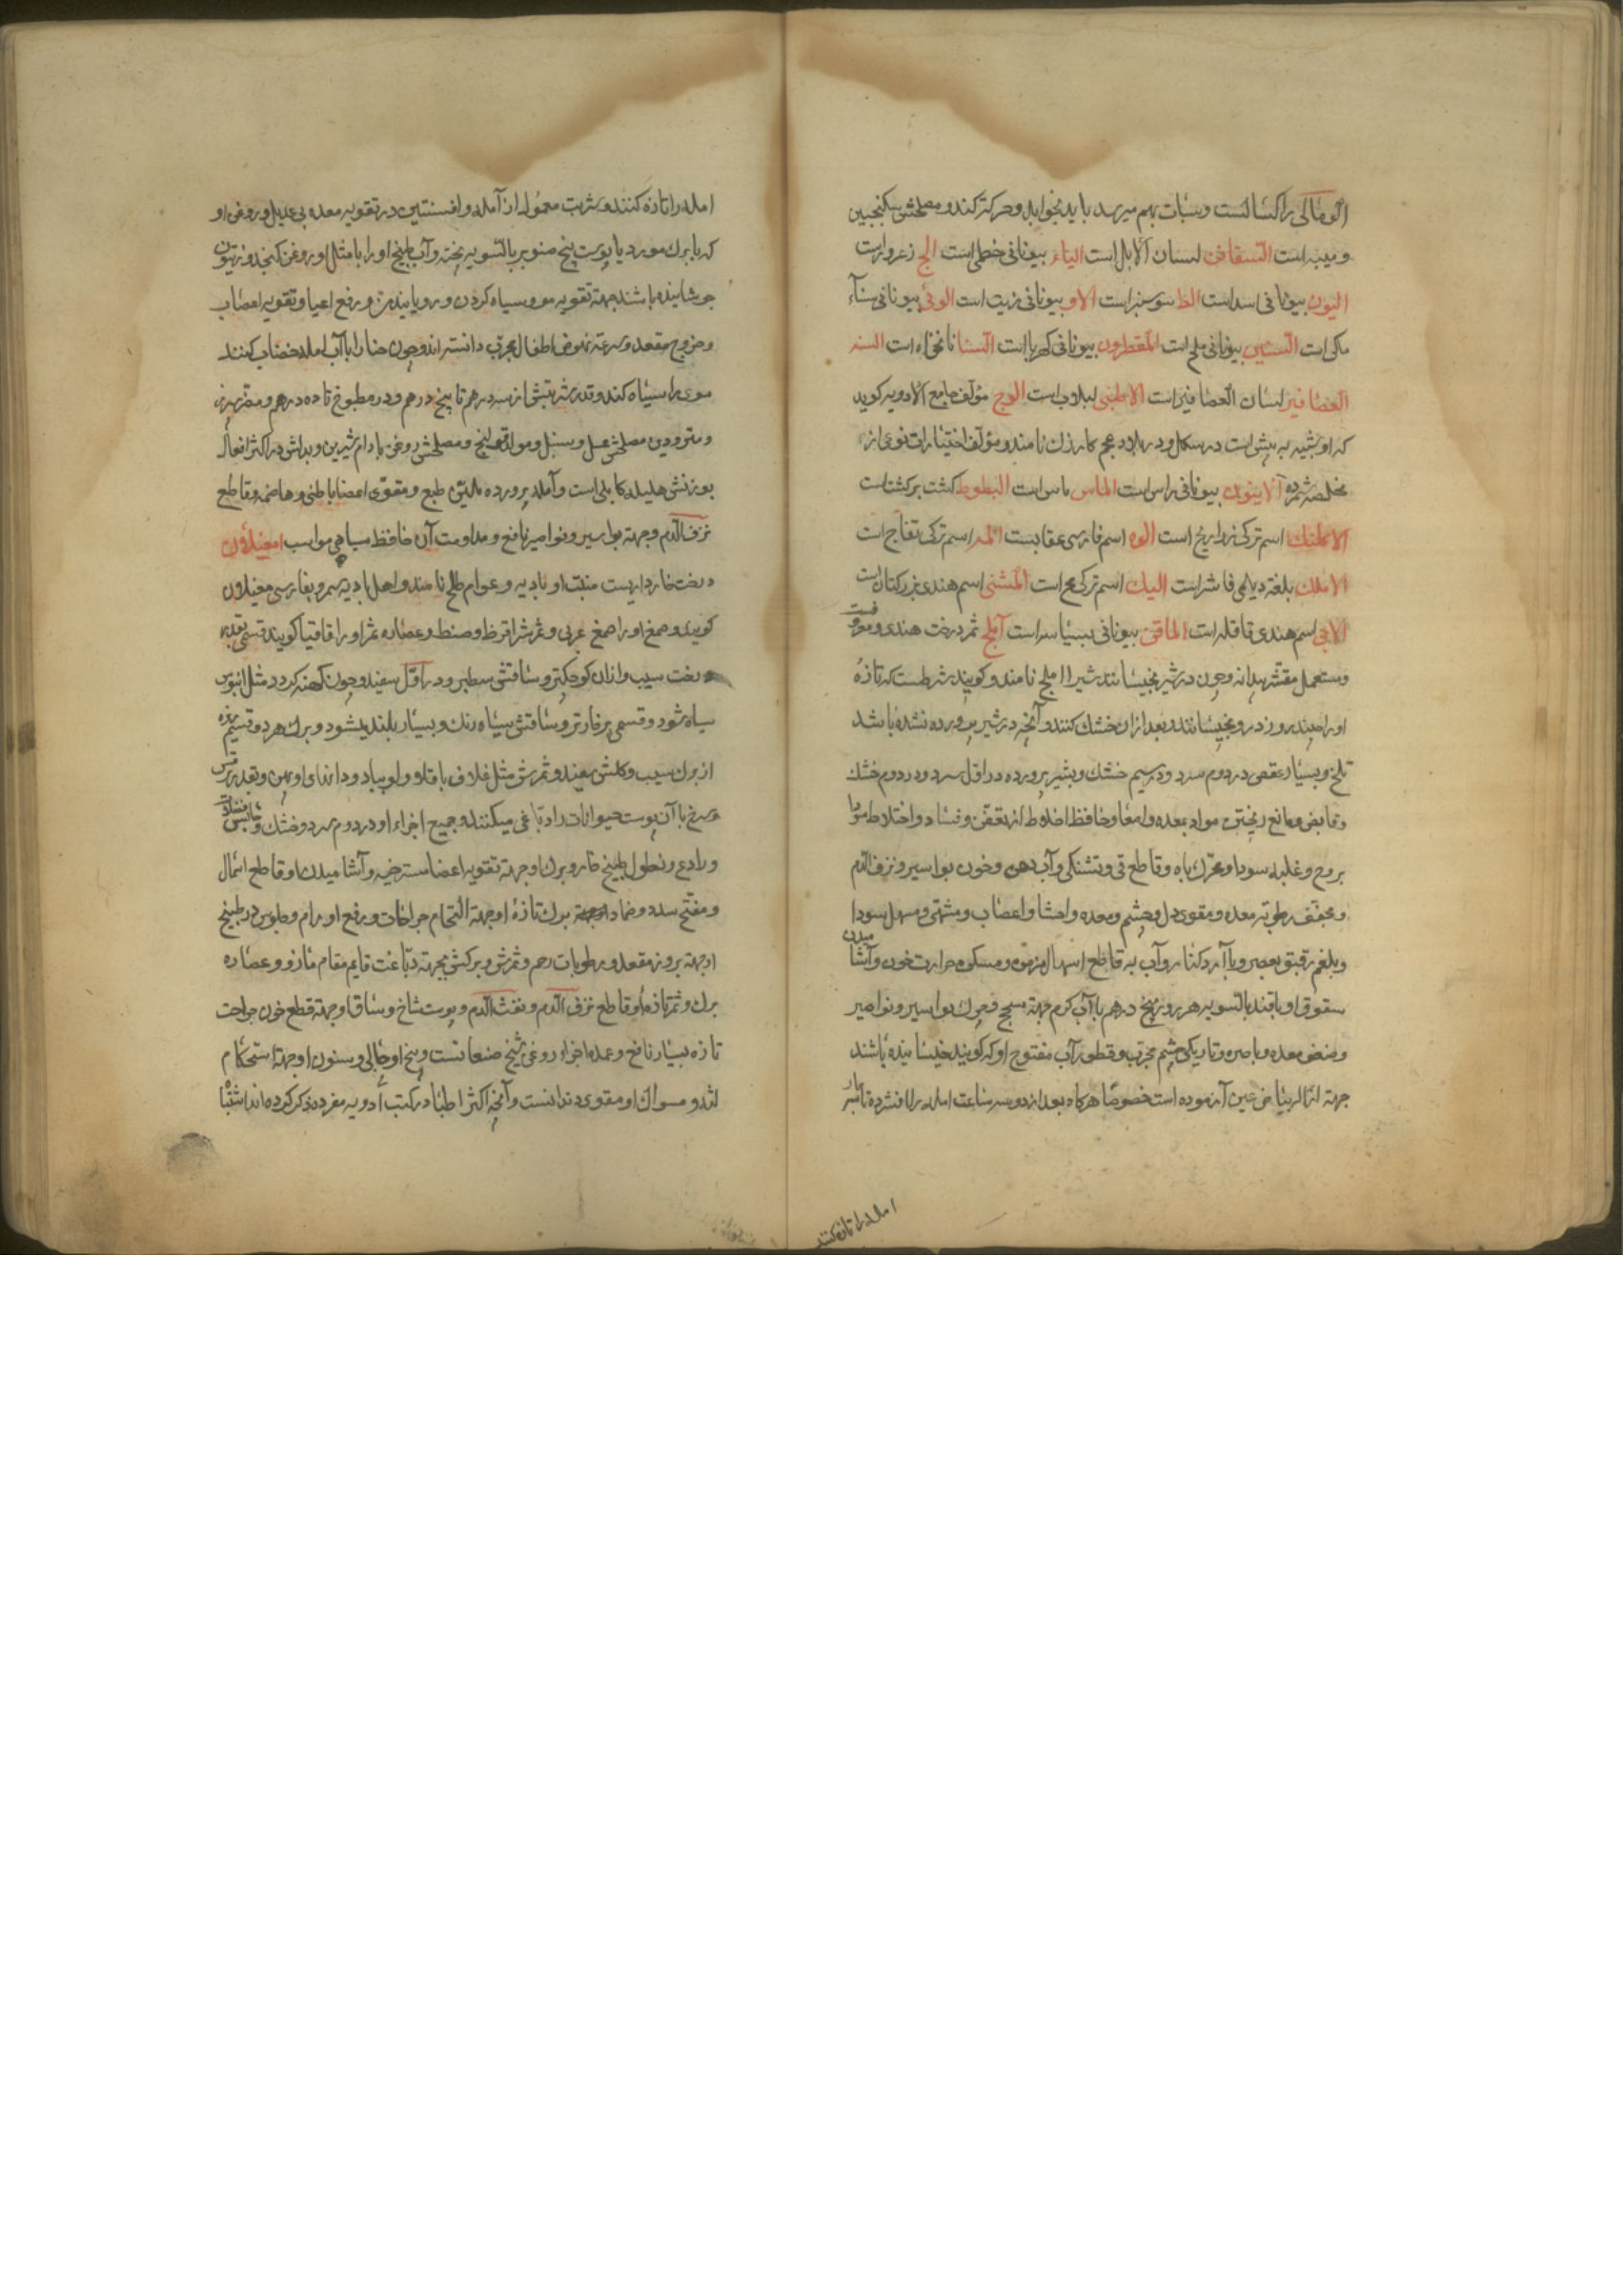 را کسالت و سبات بهم میرسد باید نخوابد و حرکت کند و مصلحش سکنجبین
است لسان الابل است الیاء بیونانی خطمی است الج زعرور است
الیون بیونانی اسد است سوسنبر است الاو بیونانی زیت است بیونانی سناء
مکی است بیونانی ملح است بیونانی کهربا است نانخواه است السنه
العصافیر لسان العصافیر است لبلاب است الوج مؤلف جامع الادویه کوید
که او شبیه به بیش است در شکل و در بلاد عجم نامند و مؤلف اختیارات نوعی از
مخلصه شمرده بیونانی راس است الماس ماس است البطوط کشت برکشت است
اسم ترکی است الوه اسم فارسی عقابست المه اسم ترکی تفاح است
الاملک بلغة دیلمی فاشر است الیک اسم ترکی است اسم هندی بزرکتان است
الاچی اسم هندی قاقله است بیونانی است آملج ثمر درخت هندیست و معروف
و مستعمل مقشر بیدانه و چون در شیر بخیسانند شیر املج نامند و کویند شرطست که تازهٔ
او را چند روز در بخیسانند و بعد از ان خشک کنند و آنچه در شیر پرورده نشده باشد
تلخ و بسیار عفص در دوم سرد و در سیم خشک و بشیر پرورده در اول سرد و در دوم خشک
و قابض و مانع ریختن مواد بمعده و امعا و حافظ اخلاط از تعفن و فساد و اختلاط مواد
بروح و غلبه سودا و محرک باه و قاطع قی و تشنکی و آب دهن و خون بواسیر و نزف الدم
و مجفف رطوبة معده و مقوی دل و چشم و معده و احشا و اعصاب و مشهی و مسهل سودا
و بلغم رقیق بعصر و با آرد کنار و آب به قاطع اسهال مزمن و مسکن حرارت خون و آشامیدن
سفوف او با قند بالسویه هر روز پنج درهم با آب کرم جهة سحج بواسیر و نواصیر
و ضعف معده و باصره و تاریکی چشم مجرب و قطور آب منقوع او که کوبیده خیسانیده باشند
جهة ازاله بیاض عین آزموده است خصوصا هرکاه بعد از دو سه ساعت امله را افشرده
امله را تازه کنند
امله را تازه کنند و شربت معمول از آمله و افسنتین در تقویه معده بی عدیل و روغن او
که با برک مورد یا پوست بیخ صنوبر بالسویه پخته و آب طبیخ او را با مثل او روغن کنجد و زیتون
جوشانیده باشند جهة تقویه مو و سیاه کردن و رویانیدن و رفع اعیا و تقویه اعصاب
و خروج مقعد و سرعة نهوض اطفال مجرب دانسته اند و چون حنا را با آب امله خضاب کنند
موی را سیاه کند و قدر شربتش از سه درهم تا پنج درهم و در مطبوخ تا ده درهم و مضر سپرز
و مبرودین مصلحش عسل و سنبل و مولد قولنج و مصلحش روغن بادام شیرین و بدلش در اکثر افعال
بوزنش هلیله کابلی است و آمله پرورده ملین طبع و مقوی اعضا باطنی و هاضمه و قاطع
نزف الدم و جهة بواسیر و نواصیر نافع و مداومت آن حافظ سیاهی مو است امغیلان
درخت خارداریست منبت او بادیه و عوام طلح نامند و اهل بادیه سمر و بفارسی مغیلان
کویند و صمغ او را صمغ عربی و ثمرش را قرظ و صنط و عصاره ثمر او را اقاقیا کویند قسمی بقدر
درخت سیب و از ان کوچکتر و ساقش سطبر و در اول سفید و چون کهنه کردد مثل ابنوس
سیاه شود و قسمی پرخارتر و ساقش سیاه رنک و بسیار بلند میشود و برک هر دو قسم
از برک سیب و کلش سفید و ثمرش مثل غلاف باقلا و لوبیا و دانهای او پهن و بقدر ترمس
و سرخ با آن پوست حیوانات را دباغی میکنند و جمیع اجزاء او در دوم سرد و خشک و حابس
و رادع و نطول طبیخ خار و برک او جهة تقویه اعضا مسترخیه و آشامیدن او قاطع اسهال
و مفتح سدد و ضماد برک تازه او جهة التحام جراحات و رفع اورام و جلوس در طبیخ
او جهة بروز مقعد و رطوبات رحم و ثمرش و برکش جهة دباغت قایم مقام مازو و عصاره
برک و ثمر تازه او قاطع نزف الدم و نفث الدم و پوست شاخ و ساق او جهة قطع خون جراحت
تازه بسیار نافع و عمده اجزاء روغن شیخ صنعانست و بیخ او جالی و سنون او جهة استحکام
لثه و مسواک او مقوی دندانست و آنچه اکثر اطبا در کتب ادویه مفرده ذکر کرده اند